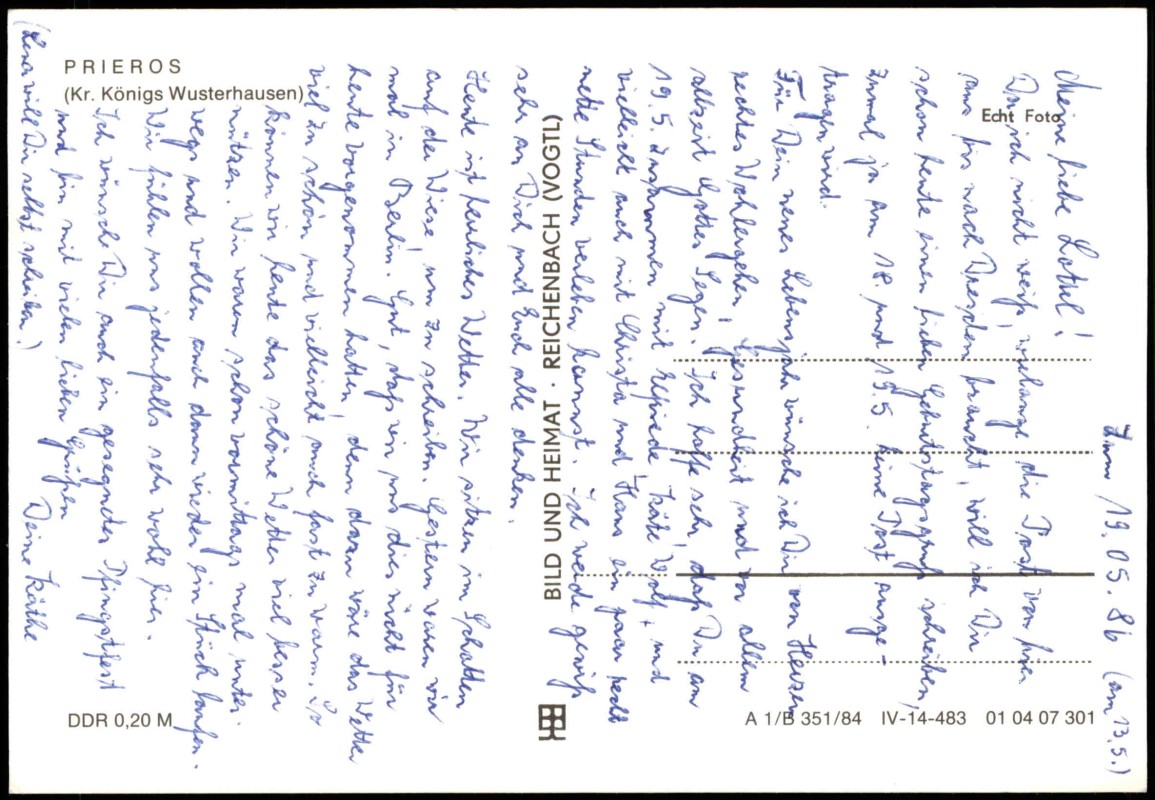 PRIEROS
(Kr. Königs Wusterhausen)
Echt Foto
BILD UND HEIMAT · REICHENBACH (VOGTL)
DDR 0,20 M
A 1/B 351/84 IV-14-483 01 04 07 301
Zum 19.05.86 (am 13.5.)
Meine liebe Lottel!
Da ich nicht weiß, wie lange die Post von hier
aus bis nach Dresden braucht, will ich Dir
schon heute einen lieben Geburtstagsgruß schreiben,
zumal ja am 18. und 19.5. keine Post ausge-
tragen wird.
Für Dein neues Lebensjahr wünsche ich Dir von Herzen
rechtes Wohlergehen, Gesundheit und vor allem
allzeit Gottes Segen. Ich hoffe sehr, daß Du am
19.5. zusammen mit Käte, Wolf + und
vielleicht auch mit Christa und Hans ein paar recht
nette Stunden verleben kannst. Ich werde gewiß
sehr an Dich und Euch alle denken.
Heute ist herrliches Wetter. Wir sitzen im Schatten
auf der Wiese, um zu schreiben. Gestern waren wir
mal in Berlin. Gut, daß wir uns dies nicht für
heute vorgenommen hatten, denn dazu wäre das Wetter
viel zu schön und vielleicht auch fast zu warm. So
können wir heute das schöne Wetter viel besser
nützen. Wir waren schon vormittags mal unter-
wegs und wollen auch dann wieder ein Stück laufen.
Wir fühlen uns jedenfalls sehr wohl hier.
Ich wünsche Dir auch ein gesegnetes Pfingstfest
und bin mit vielen lieben Grüßen
Deine Käthe
will Dir selbst schreiben.)